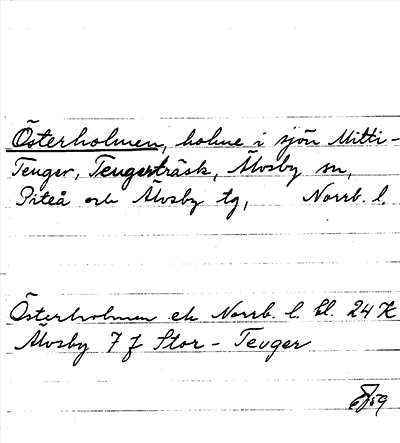 Österholmen, holme i sjön Mitti-
Teuger, Teugerträsk, Älvsby sn,
Piteå och Älvsby tg, Norrb. l.
Österholmen ek Norrb. l. bl. 24 K
Älvsby 7 f Stor-Teuger